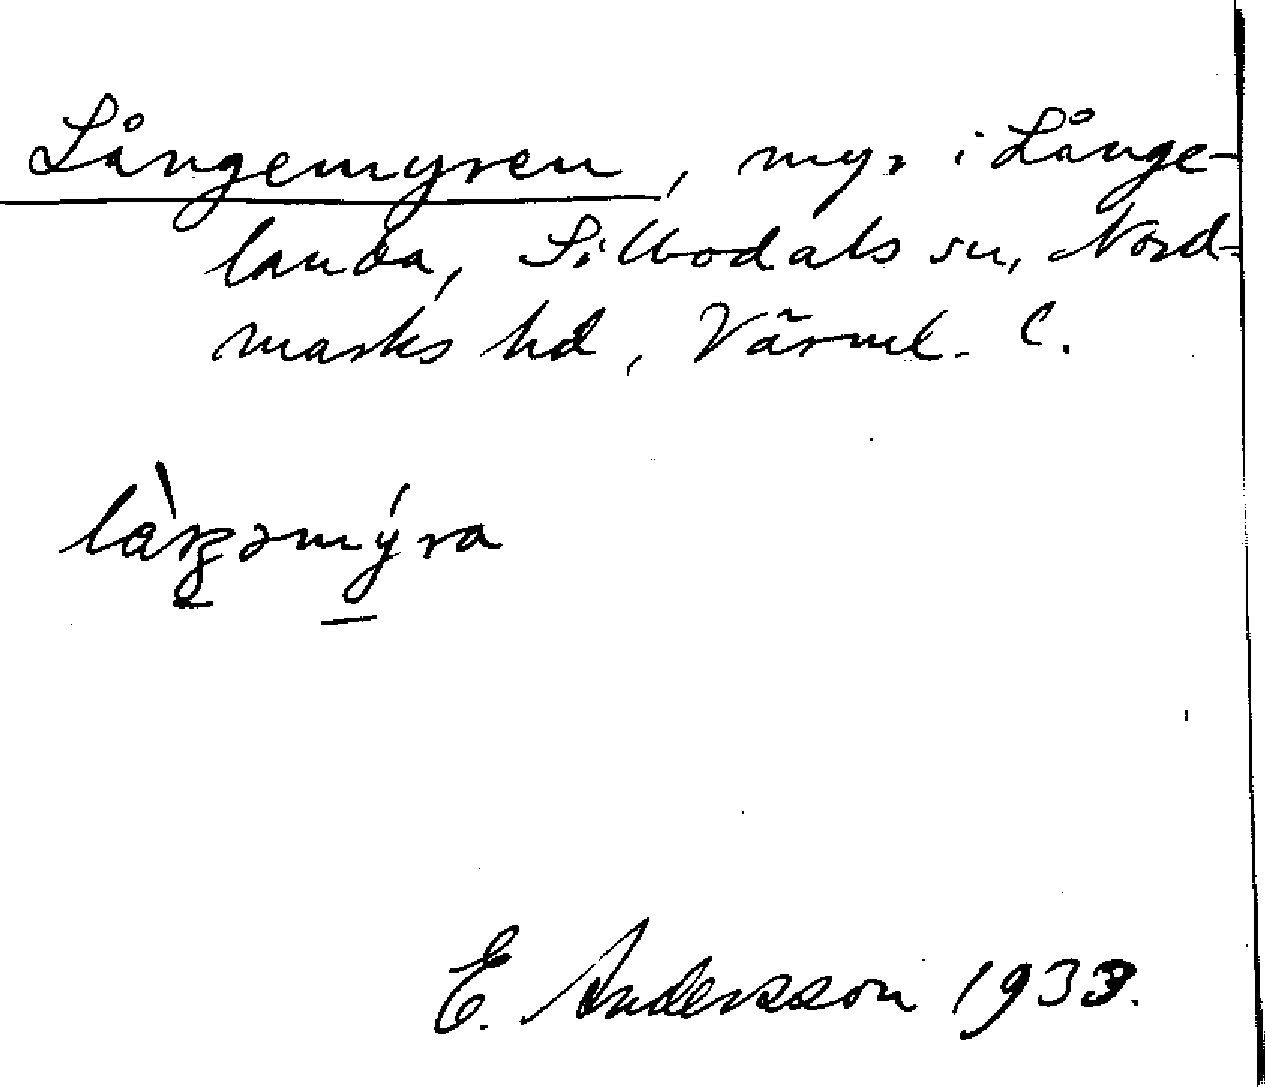 Långemyren, myr i Långe-
landa, Silbodals sn, Nord-
marks hd, Värml. l.
E. Andersson 1933.